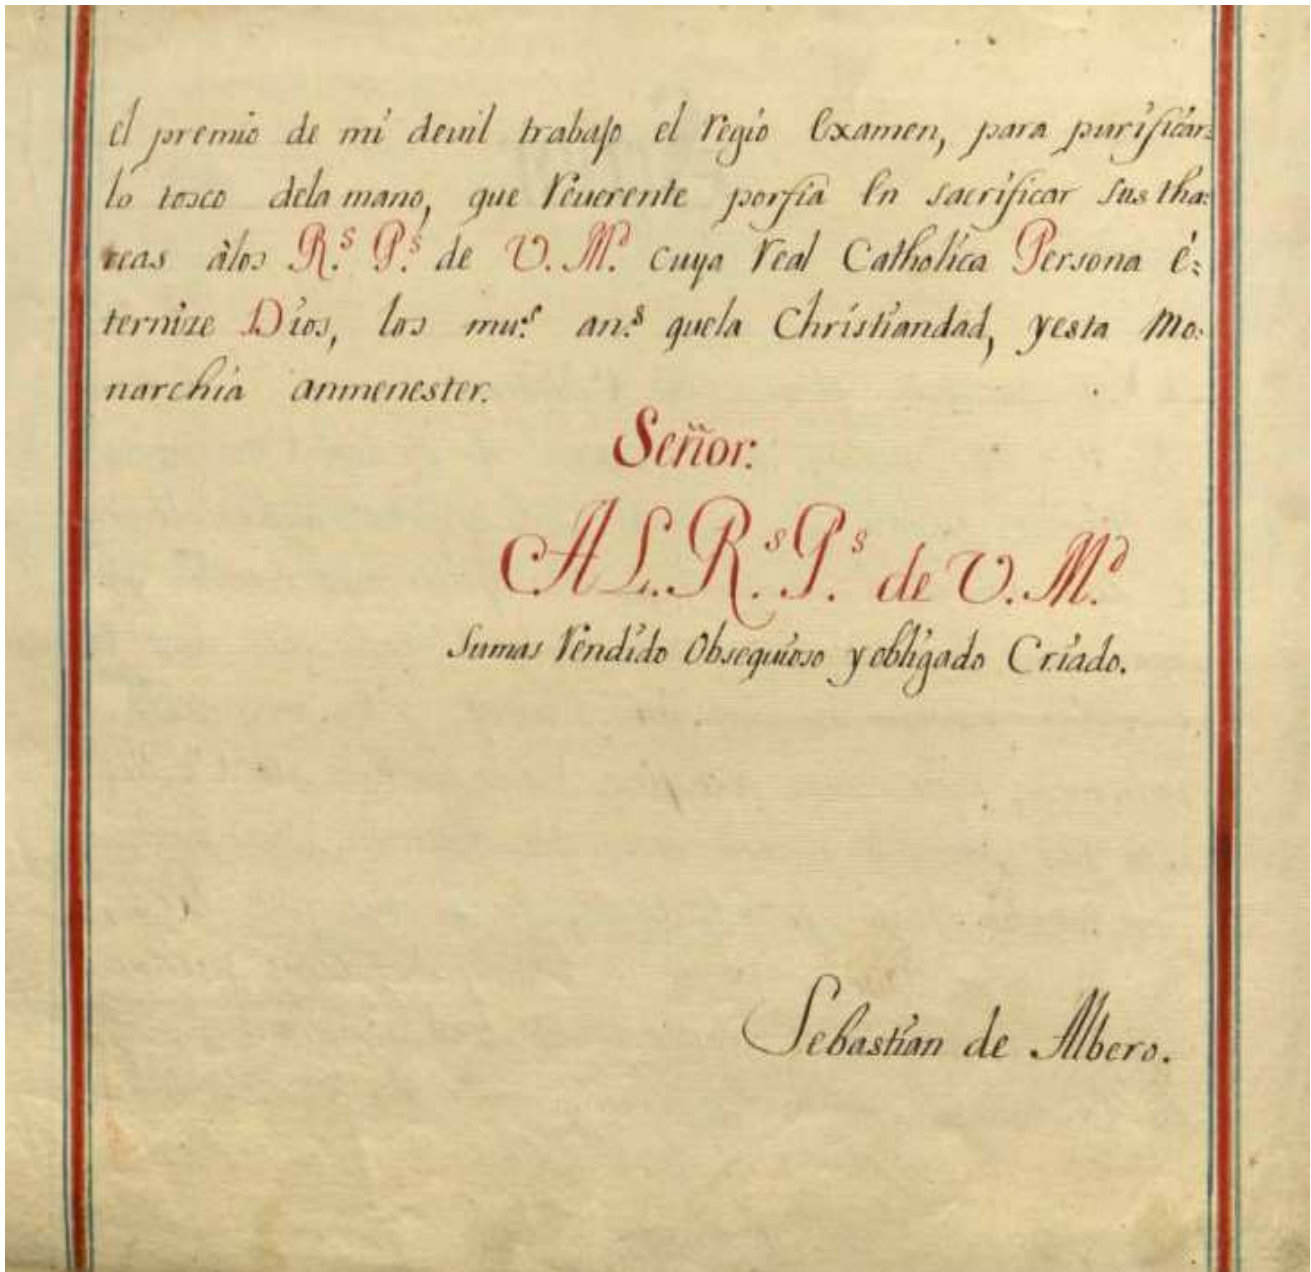 el premio de mi devil trabajo el regio Examen, para purificar:
lo tosco dela mano, que reuerente porfia En sacrificar sus tha:
reas àlos R.s P.s de V. M.d cuya real Catholica Persona é:
ternize Dios, los mu.s an.s quela Christiandad, yesta Mo:
narchia anmenester.
Señor.
A L. R.s P.s de V. M.d
Sumas rendido Obsequioso y obligado Criado.
Sebastian de Albero.